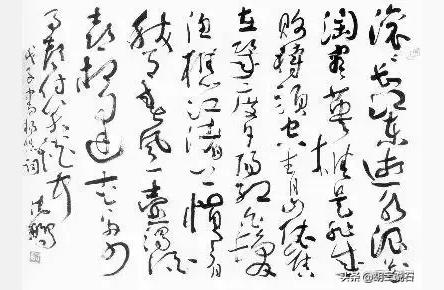 滚〻长江东逝水浪花
淘尽英雄是非成
败转头空青山依旧
在几度夕阳红白发
渔樵江渚上惯看
秋月春风一壶浊酒
喜相逢古今多少
事都付笑谈中 沈鹏
戊子杨慎词
头条